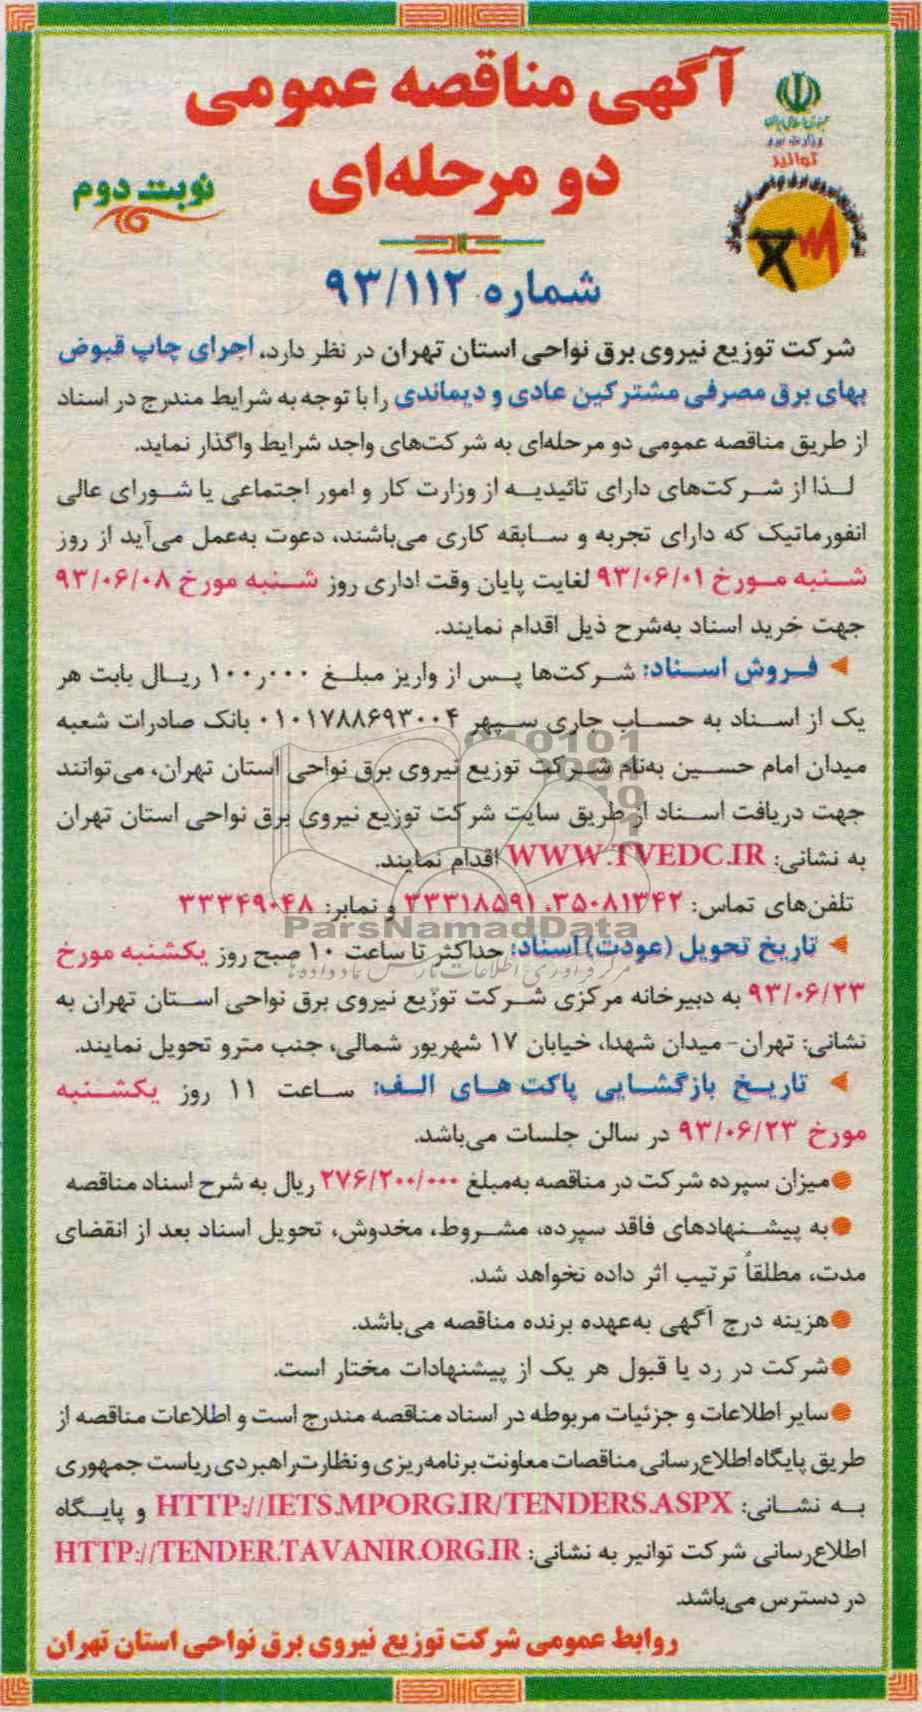 آگهی مناقصه عمومی
دو مرحله‌ای
نوبت دوم
جمهوری اسلامی ایران
وزارت نیرو
توانیر
شماره ۹۳/۱۱۲
شرکت توزیع نیروی برق نواحی استان تهران در نظر دارد، اجرای چاپ قبوض
بهای برق مصرفی مشترکین عادی و دیماندی را با توجه به شرایط مندرج در اسناد
از طریق مناقصه عمومی دو مرحله‌ای به شرکت‌های واجد شرایط واگذار نماید.
لذا از شرکت‌های دارای تائیدیه از وزارت کار و امور اجتماعی یا شورای عالی
انفورماتیک که دارای تجربه و سابقه کاری می‌باشند، دعوت به‌عمل می‌آید از روز
شنبه مورخ ۹۳/۰۶/۰۱ لغایت پایان وقت اداری روز شنبه مورخ ۹۳/۰۶/۰۸
جهت خرید اسناد به‌شرح ذیل اقدام نمایند.
فروش اسناد: شرکت‌ها پس از واریز مبلغ ۱۰۰ر۰۰۰ ریال بابت هر
یک از اسناد به حساب جاری سپهر ۰۱۰۱۷۸۸۶۹۳۰۰۴ بانک صادرات شعبه
میدان امام حسین به‌نام شرکت توزیع نیروی برق نواحی استان تهران، می‌توانند
جهت دریافت اسناد از طریق سایت شرکت توزیع نیروی برق نواحی استان تهران
به نشانی: WWW.TVEDC.IR اقدام نمایند.
تلفن‌های تماس: ۳۵۰۸۱۳۴۲، ۳۳۳۱۸۵۹۱ و نمابر: ۳۳۳۴۹۰۴۸
ParsNamadData
تاریخ تحویل (عودت) اسناد: حداکثر تا ساعت ۱۰ صبح روز یکشنبه مورخ
۹۳/۰۶/۲۳ به دبیرخانه مرکزی شرکت توزیع نیروی برق نواحی استان تهران به
نشانی: تهران- میدان شهدا، خیابان ۱۷ شهریور شمالی، جنب مترو تحویل نمایند.
تاریخ بازگشایی پاکت های الف: ساعت ۱۱ روز یکشنبه
مورخ ۹۳/۰۶/۲۳ در سالن جلسات می‌باشد.
●میزان سپرده شرکت در مناقصه به‌مبلغ ۲۷۶/۲۰۰/۰۰۰ ریال به شرح اسناد مناقصه
●به پیشنهادهای فاقد سپرده، مشروط، مخدوش، تحویل اسناد بعد از انقضای
مدت، مطلقاً ترتیب اثر داده نخواهد شد.
●هزینه درج آگهی به‌عهده برنده مناقصه می‌باشد.
●شرکت در رد یا قبول هر یک از پیشنهادات مختار است.
●سایر اطلاعات و جزئیات مربوطه در اسناد مناقصه مندرج است و اطلاعات مناقصه از
طریق پایگاه اطلاع‌رسانی مناقصات معاونت برنامه‌ریزی و نظارت راهبردی ریاست جمهوری
به نشانی: HTTP://IETS.MPORG.IR/TENDERS.ASPX و پایگاه
اطلاع‌رسانی شرکت توانیر به نشانی: HTTP://TENDER.TAVANIR.ORG.IR
در دسترس می‌باشد.
روابط عمومی شرکت توزیع نیروی برق نواحی استان تهران